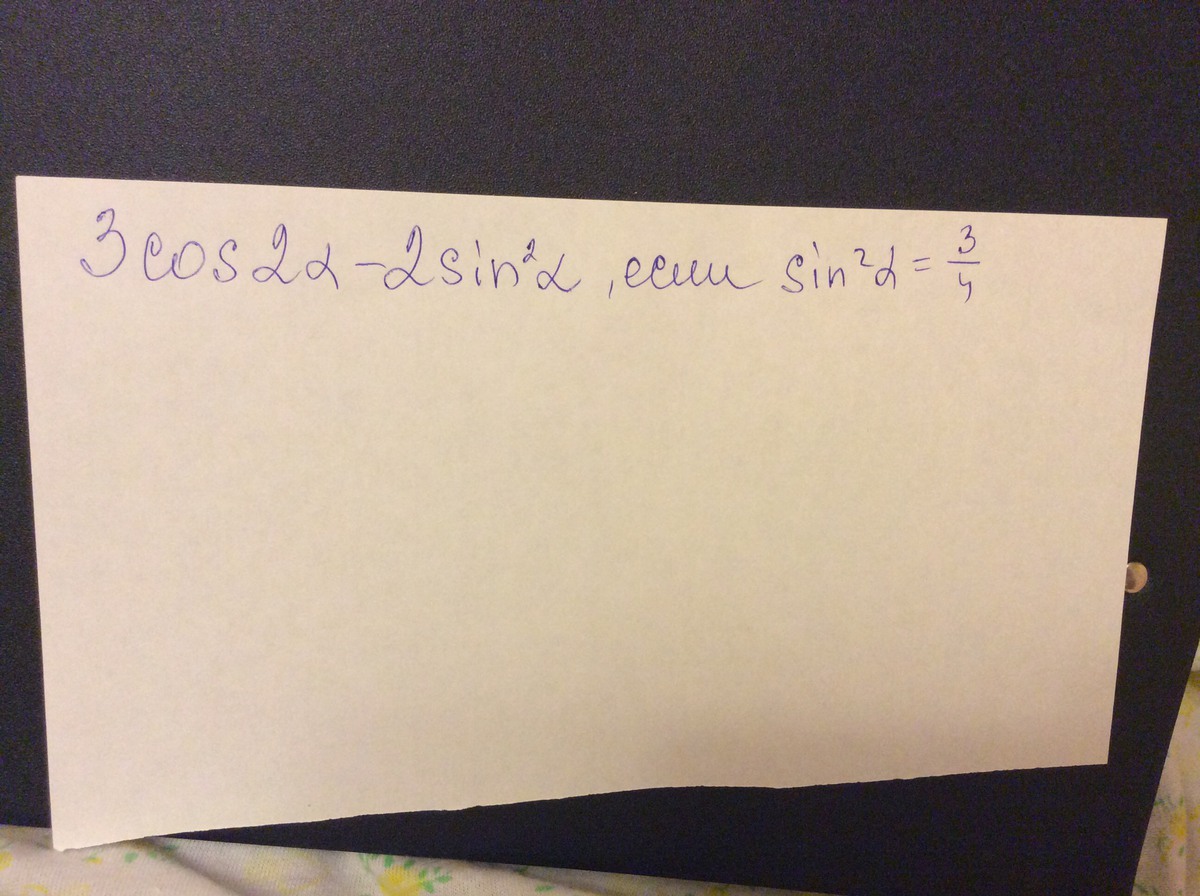 3cos2α-2sin²α, если sin²α=3/4